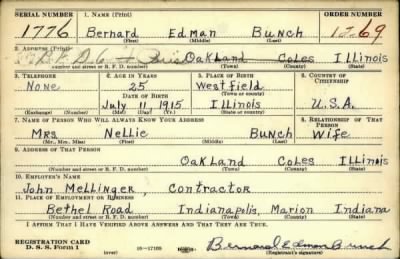 SERIAL NUMBER 1. NAME (Print) ORDER NUMBER
1776 Bernard Edman Bunch 1269
(First) (Middle) (Last)
2. ADDRESS (Print)
R.F.D. Oakland Coles Illinois
(Number and street or R. F. D. number) (Town) (County) (State)
3. TELEPHONE 4. AGE IN YEARS 5. PLACE OF BIRTH 6. COUNTRY OF CITIZENSHIP
None 25 Westfield
DATE OF BIRTH (Town or county)
July 11 1915 Illinois U.S.A.
(Exchange) (Number) (Mo.) (Day) (Yr.) (State or country)
7. NAME OF PERSON WHO WILL ALWAYS KNOW YOUR ADDRESS 8. RELATIONSHIP OF THAT PERSON
Mrs Nellie Bunch Wife
(Mr., Mrs., Miss) (First) (Middle) (Last)
9. ADDRESS OF THAT PERSON
Oakland Coles Illinois
(Number and street or R. F. D. number) (Town) (County) (State)
10. EMPLOYER'S NAME
John Mellinger, Contractor
11. PLACE OF EMPLOYMENT OR BUSINESS
Bethel Road Indianapolis, Marion Indiana
(Number and street or R. F. D. number) (Town) (County) (State)
I AFFIRM THAT I HAVE VERIFIED ABOVE ANSWERS AND THAT THEY ARE TRUE.
REGISTRATION CARD
D. S. S. Form 1 (over) 16-17105 Bernard Edman Bunch
(Registrant's signature)